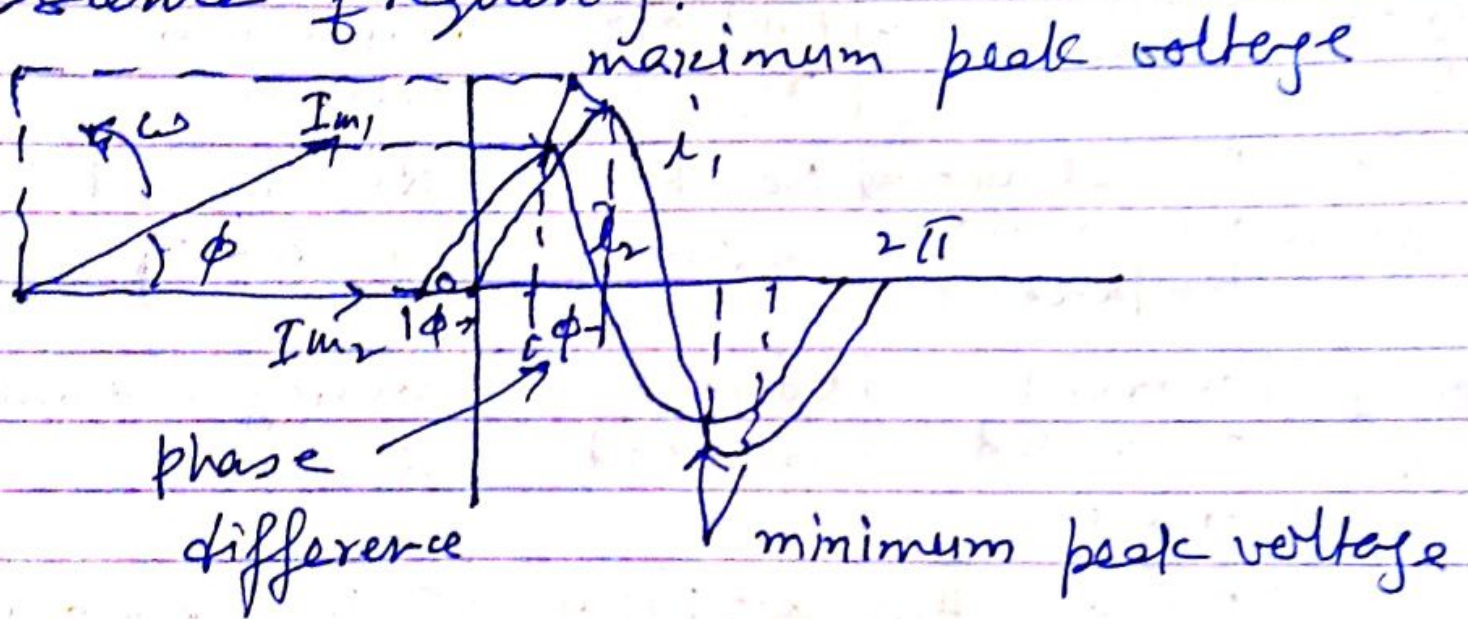 maximum peak voltage
ω
Im₁
i₁
φ
i₂
2π
Im₂
φ
φ
phase
difference
minimum peak voltage